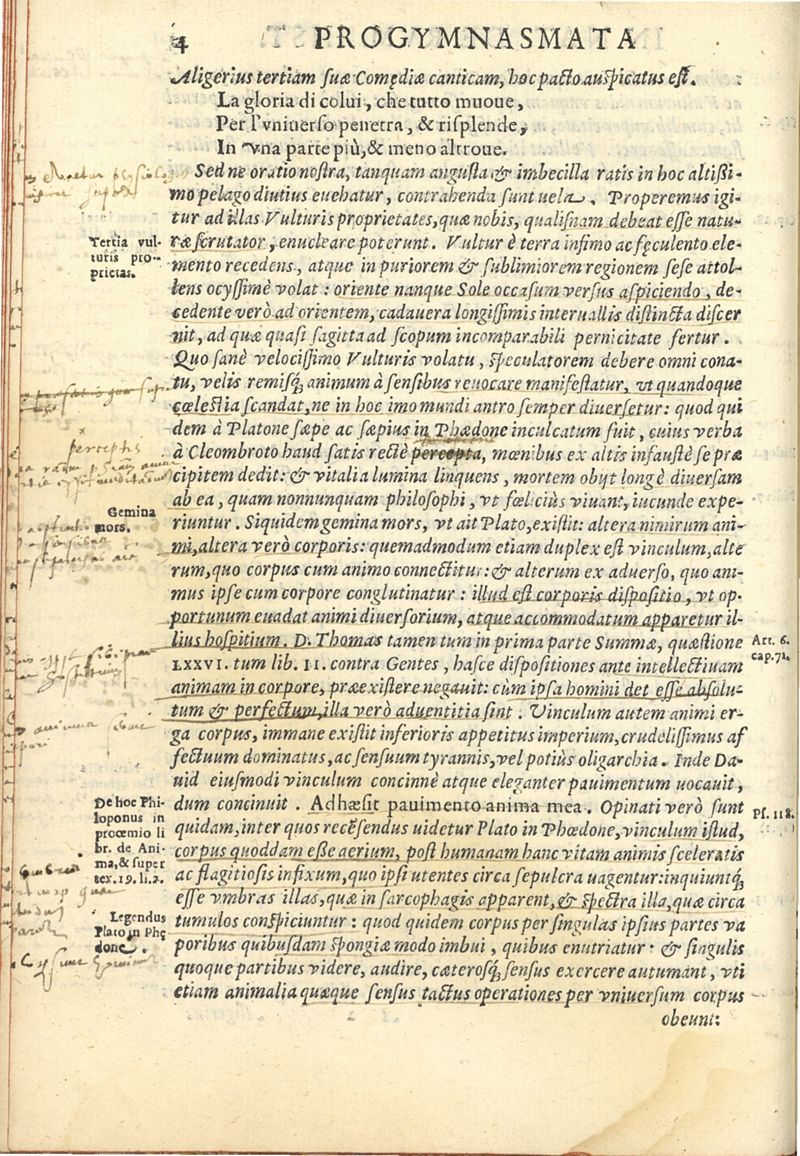 4 PROGYMNASMATA
Aligerius tertiam suæ Comędiæ canticam, hoc pacto auspicatus est.
La gloria di colui, che tutto muoue,
Per l'vniuerso penetra, & risplende,
In vna parte più, & meno altroue.
Sed ne oratio nostra, tanquam angusta & imbecilla ratis in hoc altißi-
mo pelago diutius euehatur, contrahenda sunt uela. Properemus igi-
tur ad illas Vulturis proprietates, quæ nobis, qualisnam debeat esse natu-
ræ scrutator, enucleare poterunt. Vultur è terra infimo ac fęculento ele-
mento recedens, atque in puriorem & sublimiorem regionem sese attol-
lens ocyssimè volat: oriente nanque Sole occasum versus aspiciendo, de-
cedente verò ad orientem, cadauera longissimis interuallis distincta discer
nit, ad quæ quasi sagitta ad scopum incomparabili pernicitate fertur.
Quo sanè velocissimo Vulturis volatu, speculatorem debere omni cona-
tu, velis remisq́; animum à sensibus reuocare manifestatur, vt quandoque
cœlestia scandat, ne in hoc imo mundi antro semper diuersetur: quod qui
dem à Platone sæpe ac sæpius in Phædone inculcatum fuit, cuius verba
à Cleombroto haud satis rectè percepta, mœnibus ex altis infaustè se præ
cipitem dedit: & vitalia lumina linquens, mortem obijt longè diuersam
ab ea, quam nonnunquam philosophi, vt fœlicius viuant, iucunde expe-
riuntur. Siquidem gemina mors, vt ait Plato, existit: altera nimirum ani-
mi, altera verò corporis: quemadmodum etiam duplex est vinculum, alte
rum, quo corpus cum animo connectitur: & alterum ex aduerso, quo ani-
mus ipse cum corpore conglutinatur: illud est corporis dispositio, vt op-
portunum euadat animi diuersorium, atque accommodatum apparetur il-
lius hospitium. D. Thomas tamen tum in prima parte Summæ, quæstione
LXXVI. tum lib. II. contra Gentes, hasce dispositiones ante intellectiuam
animam in corpore, præexistere negauit: cùm ipsa homini det esse absolu-
tum & perfectum, illa verò aduentitia sint. Vinculum autem animi er-
ga corpus, immane existit inferioris appetitus imperium, crudelissimus af
fectuum dominatus, ac sensuum tyrannis, vel potiùs oligarchia. Inde Da-
uid eiusmodi vinculum concinnè atque eleganter pauimentum uocauit,
dum concinuit. Adhæsit pauimento anima mea. Opinati verò sunt
quidam, inter quos recẽsendus uidetur Plato in Phœdone, vinculum istud,
corpus quoddam eße aerium, post humanam hanc vitam animis sceleratis
ac flagitiosis infixum, quo ipsi utentes circa sepulcra uagentur: inquiuntq́;
esse vmbras illas, quæ in sarcophagis apparent, & spectra illa, quæ circa
tumulos conspiciuntur: quod quidem corpus per singulas ipsius partes va
poribus quibusdam spongiæ modo imbui, quibus enutriatur: & singulis
quoque partibus videre, audire, cæterosq́; sensus exercere autumant, vti
etiam animalia quæque sensus tactus operationes per vniuersum corpus
obeunt:
Tertia vul-
turis pro-
prietas.
perceptis
Gemina
mors.
Art. 6.
cap. 71.
De hoc Phi-
loponus in
proœmio li
br. de Ani-
ma, & super
tex. 19. li. 2.
Pf. 118.
Legendus
Plato in Phę
done.